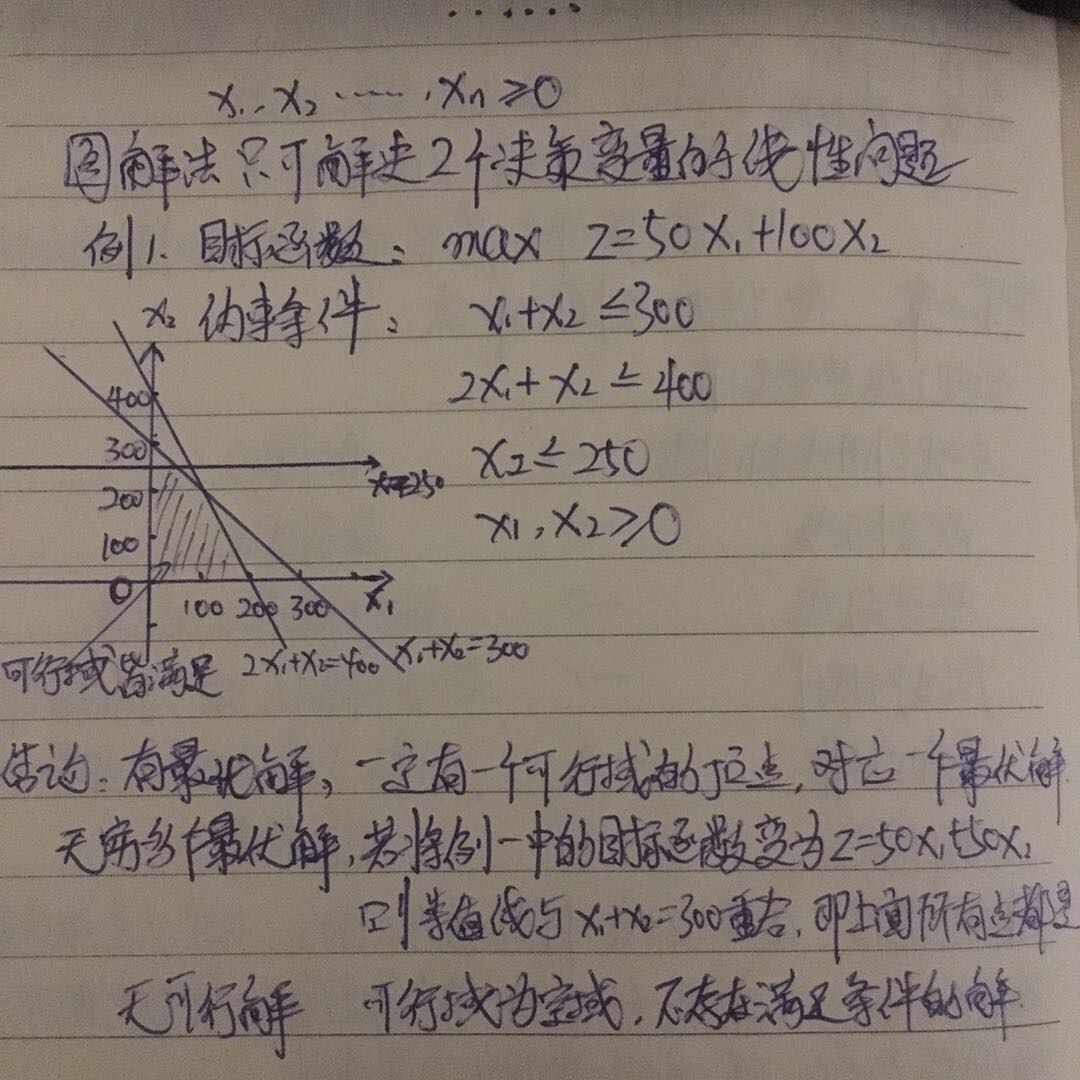 x₁, x₂ ……, xn ≥0
图解法只可解决2个决策变量的线性问题
例1. 目标函数: max Z=50x₁+100x₂
x₂ 约束条件: x₁+x₂ ≤300
2x₁+x₂ ≤ 400
400
300
x₂ ≤ 250
x₂=250
200
x₁, x₂ ≥0
100
0 100 200 300 x₁
可行域皆满足 2x₁+x₂=400 x₁+x₂=300
结论: 有最优解, 一定有一个可行域的顶点, 对应一个最优解.
无穷多个最优解, 若将例一中的目标函数变为Z=50x₁+50x₂
则等值线与x₁+x₂=300重合, 即上面所有点都是
无可行解 可行域为空域, 不存在满足条件的解.